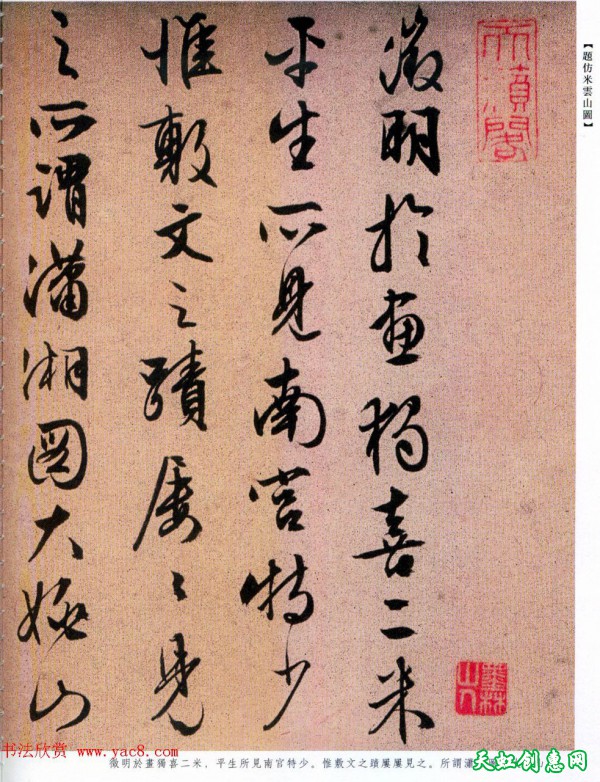 【題仿米雲山圖】
徵明於畫獨喜二米
平生所見南宮特少
惟敷文之蹟屢〻見
之所謂瀟湘圖大姚山
墨林山人
徵明於畫獨喜二米，平生所見南官特少。惟敷文之蹟屢屢見之。所謂瀟
书法欣赏 www.yac8.com
天虹创意网